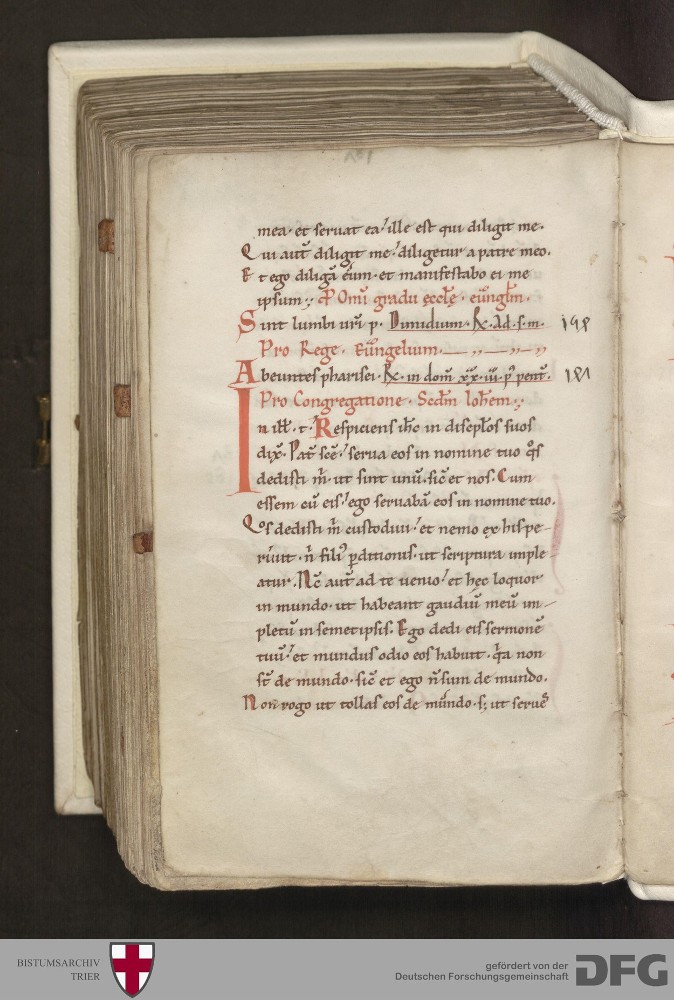 mea· et seruat ea, ille est qui diligit me·
Qui aut̄ diligit me, diligetur a patre meo.
Et ego diligā eum· et manifestabo ei me
ipsum; P Omī gradu ęcclę· euūglm̄·
Sint lumbi urī p. Dimidium· Rx· Ad· s· m· 198
Pro Rege· Euūngelium·
Abeuntes pharisei· Rx· in dom̄ xx· iii· p' pent̄· 181
Pro Congregatione· Scdm̄ Iohēm;
In ill̄· t· Respiciens ihc̄ in discipl̄os suos
dix̄· Pat̄ scē, serua eos in nomine tuo q̊s
dedisti m̄· ut sint unū· sic̄ et nos· Cum
essem cū eis, ego seruabā eos in nomine tuo.
Quos dedisti m̄ custodiui, et nemo ex his pe-
riuit· n̄ fili' pditionis· ut scriptura imple-
atur. Nc̄ aut̄ ad te uenio, et hęc loquor
in mundo· ut habeant gaudiū meū im-
pletū in semetipsis· Ego dedi eis sermonē
tuū, et mundus odio eos habuit· q̄a non
st̄ de mundo· sic̄ et ego n̄ sum de mundo·
Non rogo ut tollas eos de mundo· s; ut seruēs
BISTUMSARCHIV
TRIER
gefördert von der
Deutschen Forschungsgemeinschaft
DFG